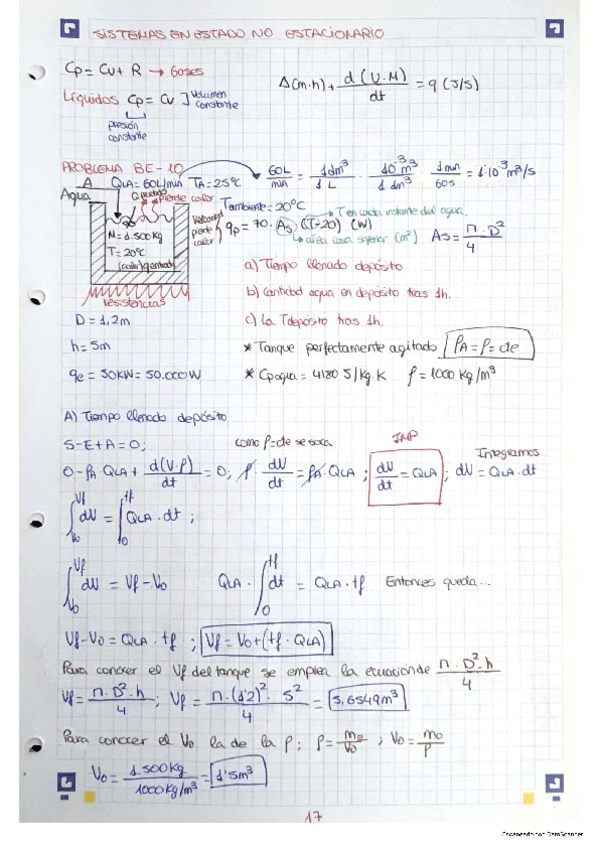 SISTEMAS EN ESTADO NO ESTACIONARIO
Cp = Cv + R → Gases
Δ(m·h) + d(U·M)/dt = q (J/s)
Líquidos Cp = Cv ] Volumen constante
presión constante
PROBLEMA BE-10
60L/min = 1dm³/1L · 10⁻³m³/1dm³ · 1min/60s = 1·10⁻³ m³/s
A QLA = 60L/min TA = 25ºC
Agua
Pierde calor
Tambiente = 20ºC
M = 1.500Kg
T = 20ºC
qp = 70·As (T-20) (W)
T en cada instante del agua
área cara superior (m²)
As = π·D²/4
resistencias
a) Tiempo llenado depósito
b) Cantidad agua en depósito tras 1h.
D = 1,2m
c) La Tdepósito tras 1h.
h = 5m
* Tanque perfectamente agitado / ρA = ρ = cte
qe = 50KW = 50.000W
* Cpagua = 4180 J/kg·K ρ = 1000 kg/m³
A) Tiempo llenado depósito
S-E+A = 0;
como ρ=cte se saca
IMP
Integramos
0 - ρA·QLA + d(V·ρ)/dt = 0; ρ·dV/dt = ρA·QLA ; dV/dt = QLA ; dV = QLA·dt
∫V0Vf dV = ∫0tf QLA·dt ;
∫V0Vf dV = Vf-V0 QLA·∫0tf dt = QLA·tf Entonces queda...
Vf-V0 = QLA·tf ; Vf = V0+(tf·QLA)
Para conocer el Vf del tanque se emplea la ecuación de π·D²·h/4
Vf = π·D²·h/4 ; Vf = π·(1'2)²·5/4 = 5,6549m³
Para conocer el V0 la de la ρ; ρ = m0/V0 ; V0 = m0/ρ
V0 = 1.500Kg/1000Kg/m³ = 1'5m³
17
Escaneado con CamScanner